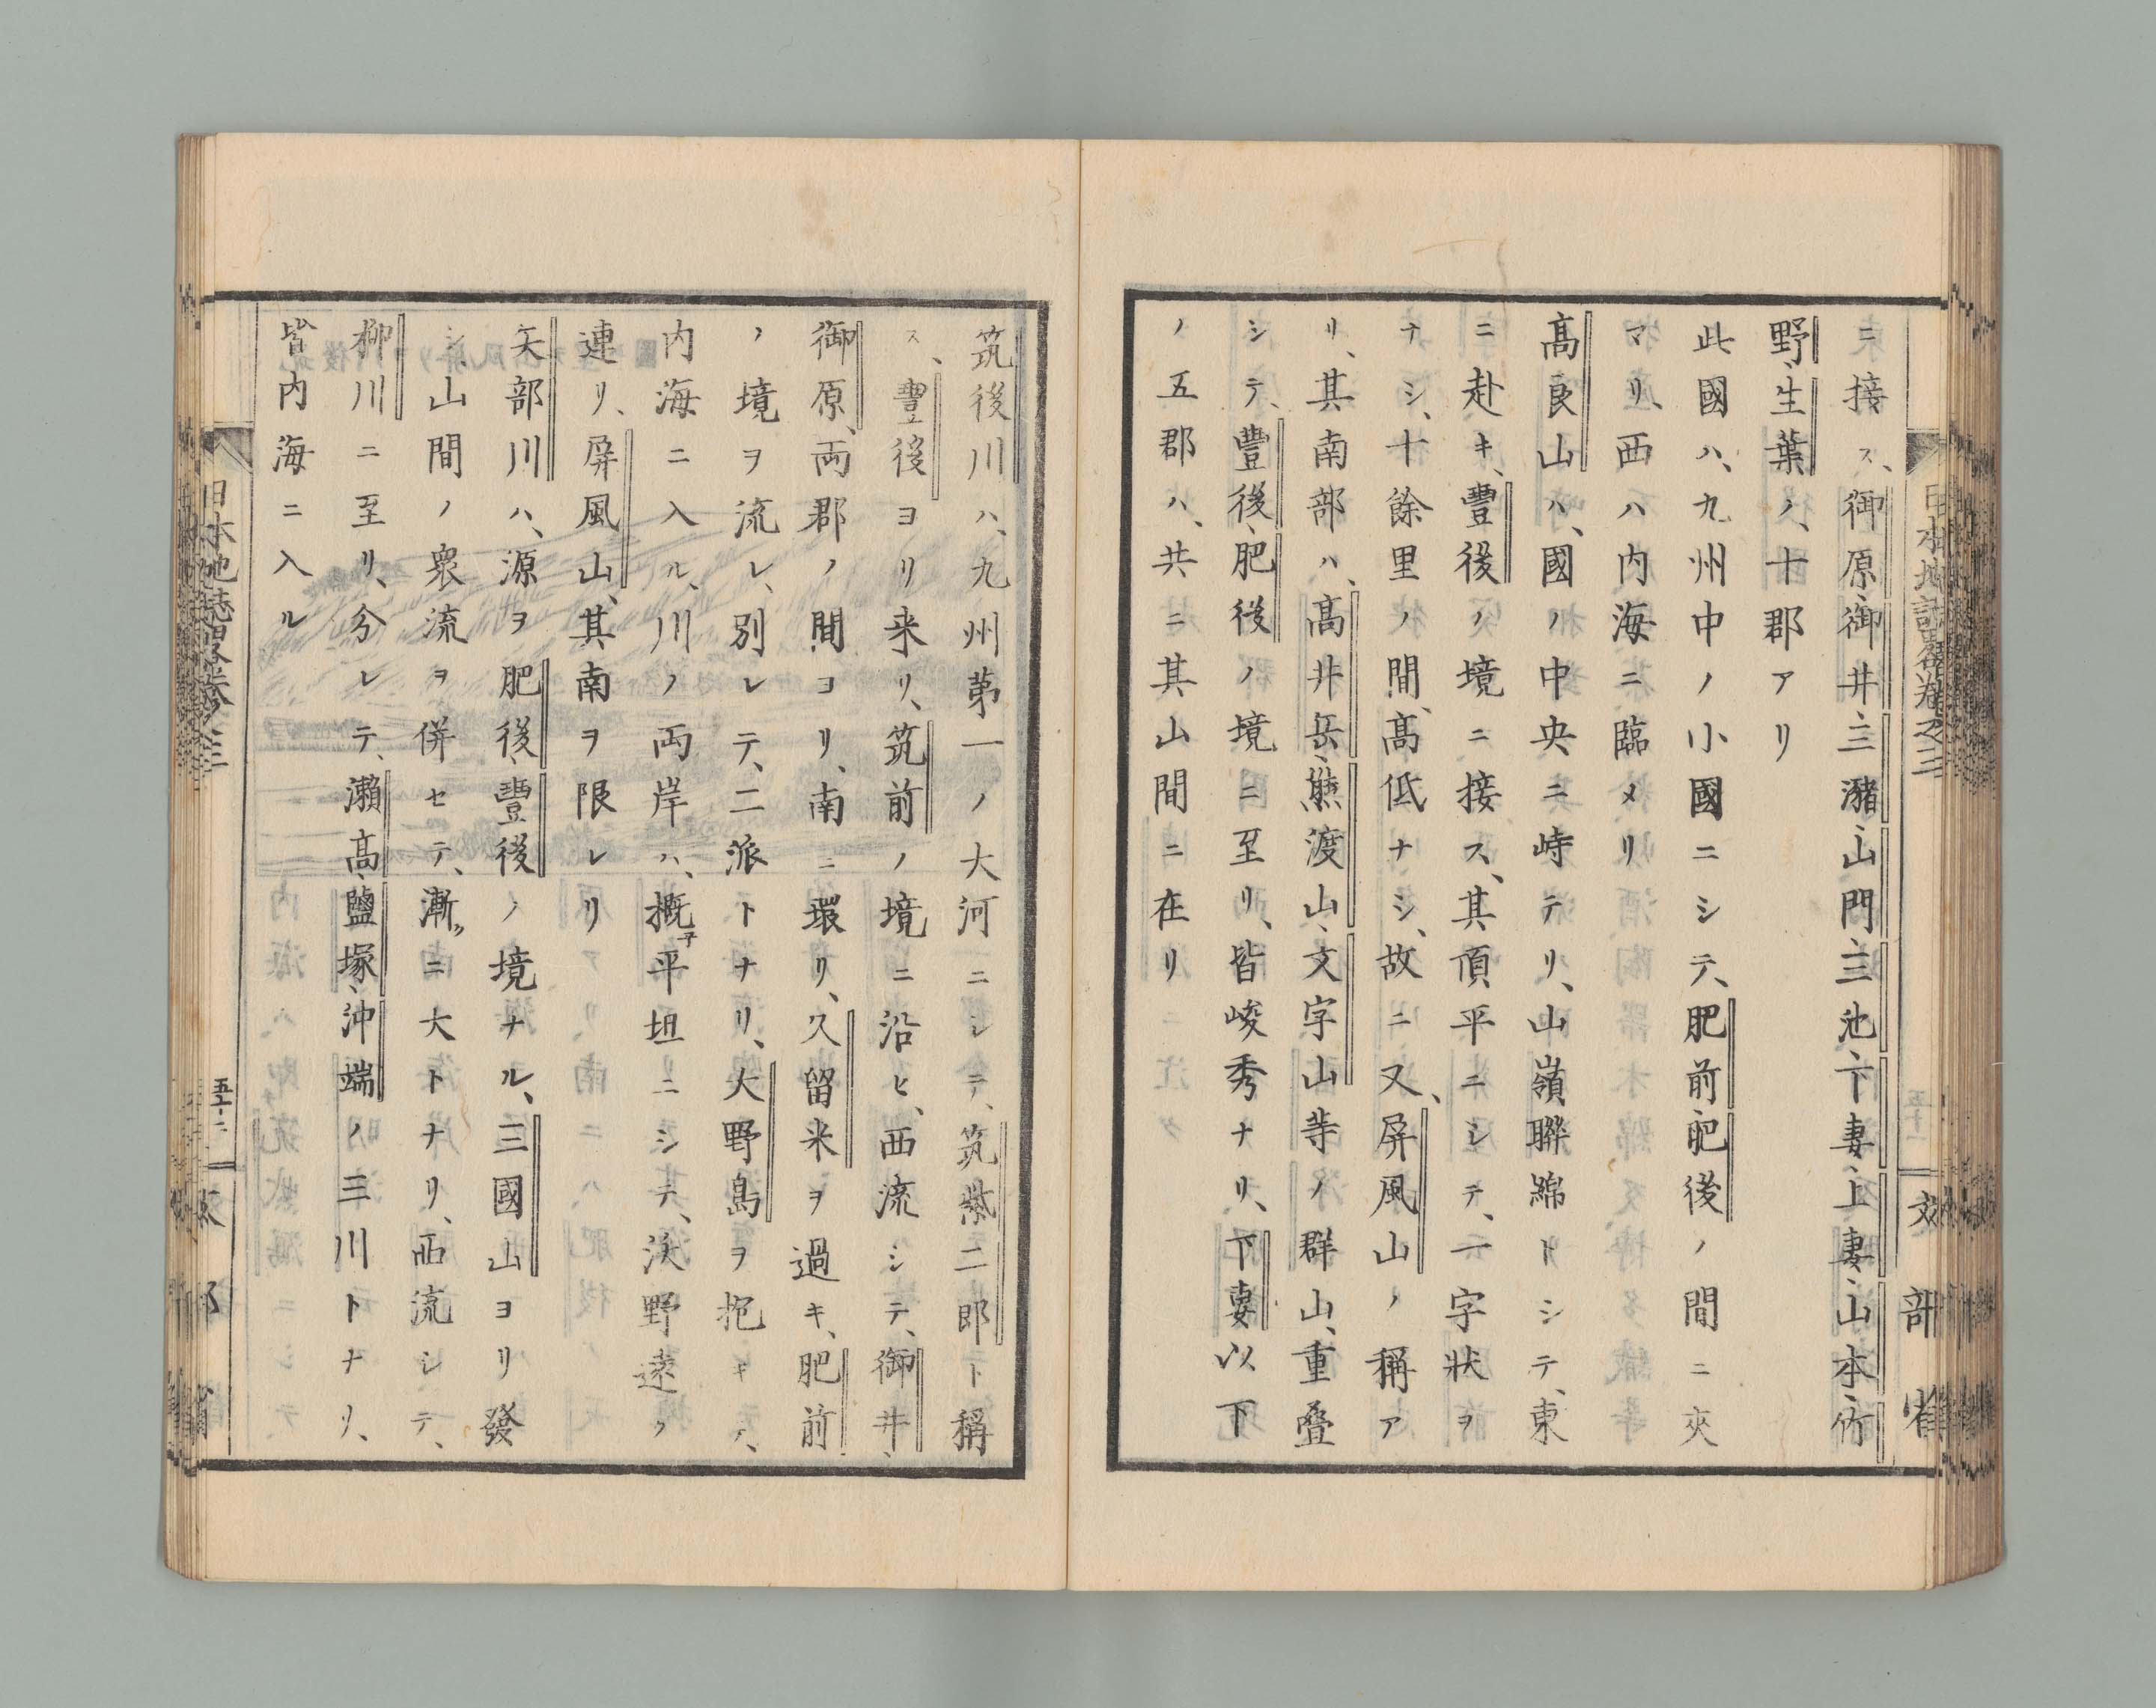 ニ接ス、御原、御井、三瀦、山門、三池、下妻、上妻、山本、竹
野、生葉ノ、十郡アリ
此國ハ、九州中ノ小國ニシテ、肥前、肥後ノ間ニ夾
マリ、西ハ内海ニ臨メリ
髙良山ハ、國ノ中央ニ峙テリ、山嶺聯綿トシテ、東
ニ赴キ、豐後ノ境ニ接ス、其頂平ニシテ、一字狀ヲ
ナシ、十餘里ノ間、髙低ナシ、故ニ又、屏風山ノ稱ア
リ、其南部ハ、髙井岳、熊渡山、文字山等ノ群山、重疊
シテ、豐後、肥後ノ境ニ至リ、皆峻秀ナリ、下妻以下
ノ五郡ハ、共ニ其山間ニ在リ
日本地誌畧卷之三
五十一
文部省
筑後川ハ、九州第一ノ大河ニシテ、筑紫二郎ト稱
ス、豐後ヨリ来リ、筑前ノ境ニ沿ヒ、西流シテ、御井、
御原、両郡ノ間ヨリ、南ニ環リ、久留米ヲ過キ、肥前
ノ境ヲ流レ、別レテ、二派トナリ、大野島ヲ抱キテ、
内海ニ入ル、川ノ両岸ハ、概子平坦ニシテ、沃野遠ク
連リ、屏風山、其南ヲ限レリ
矢部川ハ、源ヲ肥後、豐後ノ境ナル、三國山ヨリ發
シ、山間ノ衆流ヲ併セテ、漸クニ大トナリ、西流シテ、
柳川ニ至リ、分レテ、瀬髙、鹽塚、沖端ノ三川トナリ、
皆内海ニ入ル
日本地誌畧卷之三
五十二
文部省